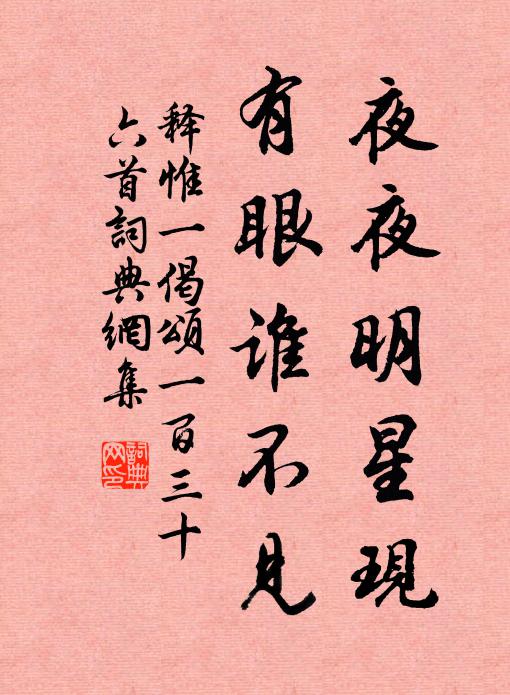 夜夜明星現
有眼谁不见
释惟一偈頌一百三十
六首詞典網集
詞典
网印